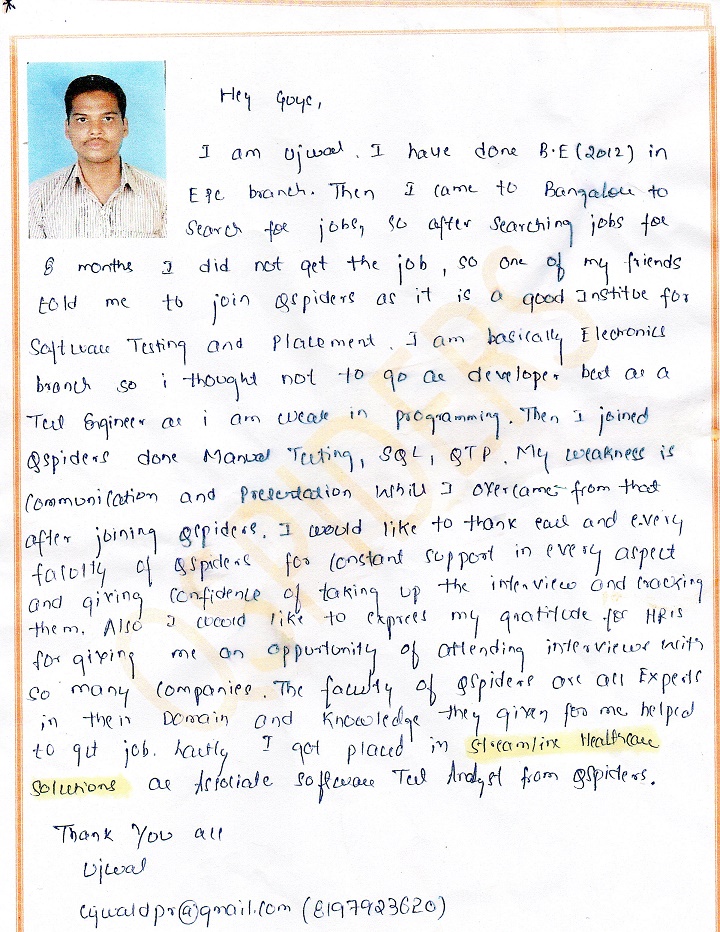 Hey Guys,
I am Ujwal. I have done B.E (2012) in
E&C branch. Then I came to Bangalore to
Search for jobs, so after searching jobs for
8 months I did not get the job, so one of my friends
told me to join Qspiders as it is a good Institue for
Software Testing and Placement. I am basically Elecronics
branch so i thought not to go as developer but as a
Test Engineer as i am weak in programming. Then I joined
Qspiders done Manual Testing, SQL, QTP. My weakness is
Communication and Presentation which I overcame from that
after joining Qspiders. I would like to thank each and every
faculty of Qspiders for constant support in every aspect
and giving confidence of taking up the interview and cracking
them. Also I would like to express my gratitude for HR's
for giving me an opportunity of attending interviews with
so many companies. The faculty of Qspiders are all Experts
in their Domain and knowledge they given for me helped
to get job. Lastly I got placed in Streamline Healthcare
Solutions as Associate software Test Analyst from Qspiders.
Thank You all
Ujwal
ujwaldpr@gmail.com (8197923620)
QSPIDERS